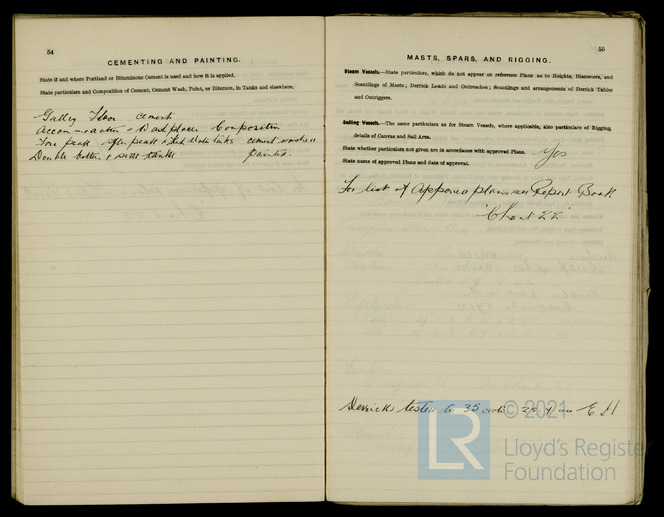 54
CEMENTING AND PAINTING.
State if and where Portland or Bituminous Cement is used and how it is applied.
State particulars and Composition of Cement, Cement Wash, Paint, or Bitumen, in Tanks and elsewhere.
Galley Floor cement
Accommodation & Composition
Fore peak after peak & cement washed
Double bottom & tanks painted.
55
MASTS, SPARS, AND RIGGING.
Steam Vessels.—State particulars, which do not appear on reference Plans as to Heights, Diameters, and
Scantlings of Masts; Derrick Loads and Outreaches; Scantlings and arrangements of Derrick Tables
and Outriggers.
Sailing Vessels.—The same particulars as for Steam Vessels, where applicable, also particulars of Rigging,
details of Canvas and Sail Area.
State whether particulars not given are in accordance with approved Plans. Yes
State name of approved Plans and date of approval.
For list of Approved plans see Report Book
Derricks tested to 35
LR
© 2021
Lloyd's Register
Foundation